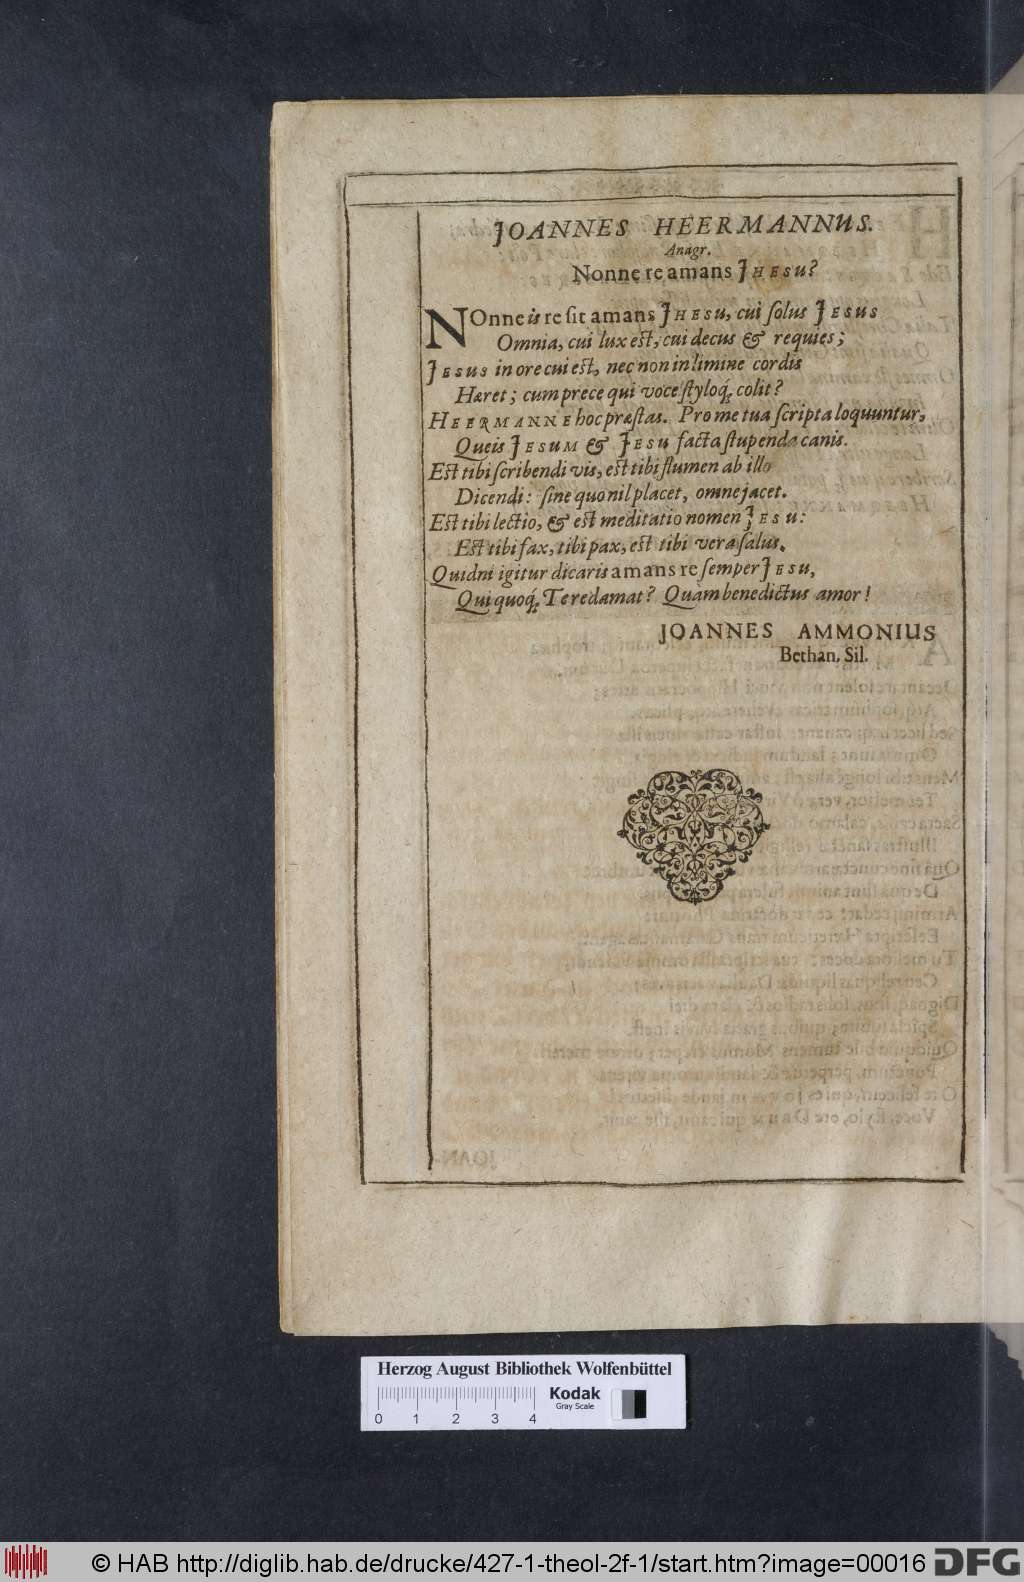 JOANNES HEERMANNUS.
Anagr.
Nonne re amans JHESU?
NOnne is re sit amans JHESU, cui solus JESUS
Omnia, cui lux est, cui decus & requies;
JESUS in ore cui est, nec non in limine cordis
Hæret; cum prece qui voce styloq́; colit?
HEERMANNE hoc præstas. Pro me tua scripta loquuntur,
Queis JESUM & JESU facta stupenda canis.
Est tibi scribendi vis, est tibi flumen ab illo
Dicendi: sine quo nil placet, omne jacet.
Est tibi lectio, & est meditatio nomen JESU:
Est tibi fax, tibi pax, est tibi vera salus.
Quidni igitur dicaris amans re semper JESU,
Qui quoq́; Te redamat? Quàm benedictus amor!
JOANNES AMMONIUS
Bethan. Sil.
Herzog August Bibliothek Wolfenbüttel
Kodak
Gray Scale
0 1 2 3 4
© HAB http://diglib.hab.de/drucke/427-1-theol-2f-1/start.htm?image=00016
DFG